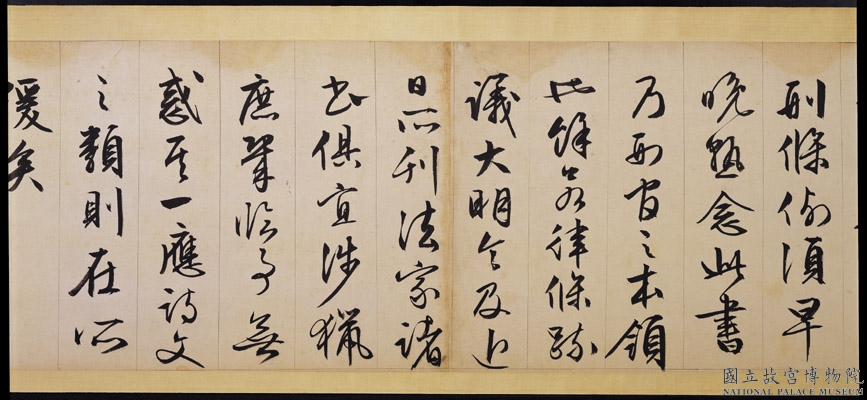 刑條例須早
晚熟念此書
乃刑官之本領
餘若律條疏
議大明令及近
日所刊法家諸
書俱宜涉獵
庶幾臨事無
惑其一應詩文
之類則在所
緩矣
國立故宮博物院
NATIONAL PALACE MUSEUM